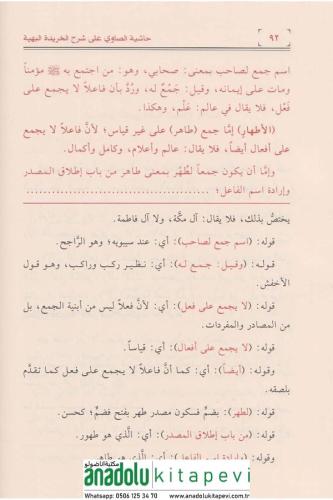 ٩٢
حاشية الصاوي على شرح الخريدة البهية
اسم جمع لصاحب بمعنى: صحابي، وهو: من اجتمع به ﷺ مؤمناً
ومات على إيمانه، وقيل: جَمْعٌ له، ورُدَّ بأن فاعلاً لا يجمع على
فَعْل، فلا يقال في عالم: عَلْم، وهكذا.
(الأطهار) إمَّا جمع (طاهر) على غير قياس؛ لأنَّ فاعلاً لا يجمع
على أفعال أيضاً، فلا يقال: عالم وأعلام، وكامل وأكمال.
وإمَّا أن يكون جمعاً لطُهْر بمعنى طاهر من باب إطلاق المصدر
وإرادة اسم الفاعل؛ ........................................
يختصُّ بذلك، فلا يقال: آل مكَّة، ولا آل فاطمة.
قوله: (اسم جمع لصاحب): أي: عند سيبويه؛ وهو الرَّاجح.
قوله: (وقيل: جمع له): أي: نظير ركب وراكب، وهو قول
الأخفش.
قوله: (لا يجمع على فعل): أي: لأنَّ فعلاً ليس من أبنية الجمع، بل
من المصادر والمفردات.
قوله: (لا يجمع على أفعال): أي: قياساً.
وقوله: (أيضاً): أي: كما أنَّ فاعلاً لا يجمع على فعل كما تقدَّم
بلصقه.
قوله: (لطهر): بضمٍّ فسكون مصدر طهر بفتح فضمٍّ؛ كحسن.
قوله: (من باب إطلاق المصدر): أي: الَّذي هو طهور.
وقوله: (وإرادة اسم الفاعل): أي: الَّذي هو طاهر.
مكتبة الأناضولو
anadolu kitapevi
Whatsapp: 0506 125 34 70 www.anadolukitapevi.com.tr